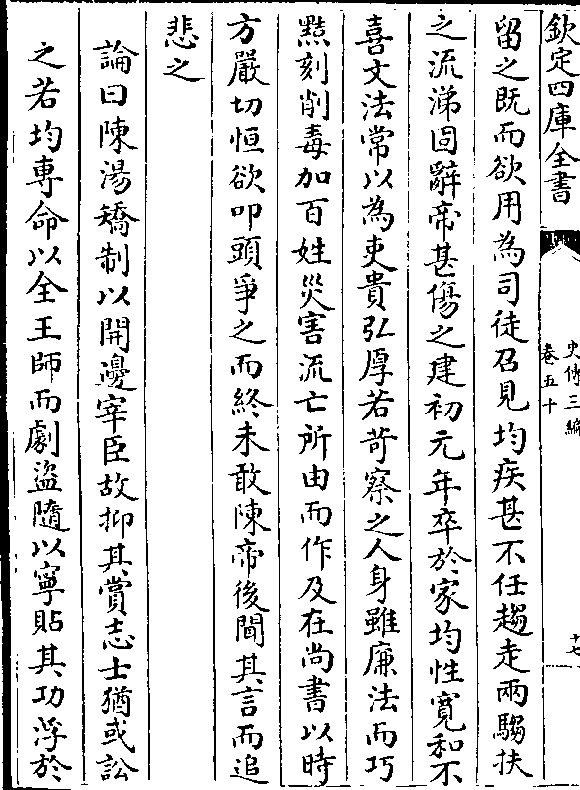 欽定四庫全書
史傳三編
卷五十
十七
留之既而欲用為司徒召見均疾甚不任趨走兩騶扶
之流涕固辭帝甚傷之建初元年卒於家均性寬和不
喜文法常以為吏貴弘厚若苛察之人身雖廉法而巧
黠刻削毒加百姓災害流亡所由而作及在尚書以時
方嚴切恒欲叩頭爭之而終未敢陳帝後聞其言而追
悲之
論曰陳湯矯制以開邊宰臣故抑其賞志士猶或訟
之若均專命以全王師而劇盜隨以寧貼其功浮於